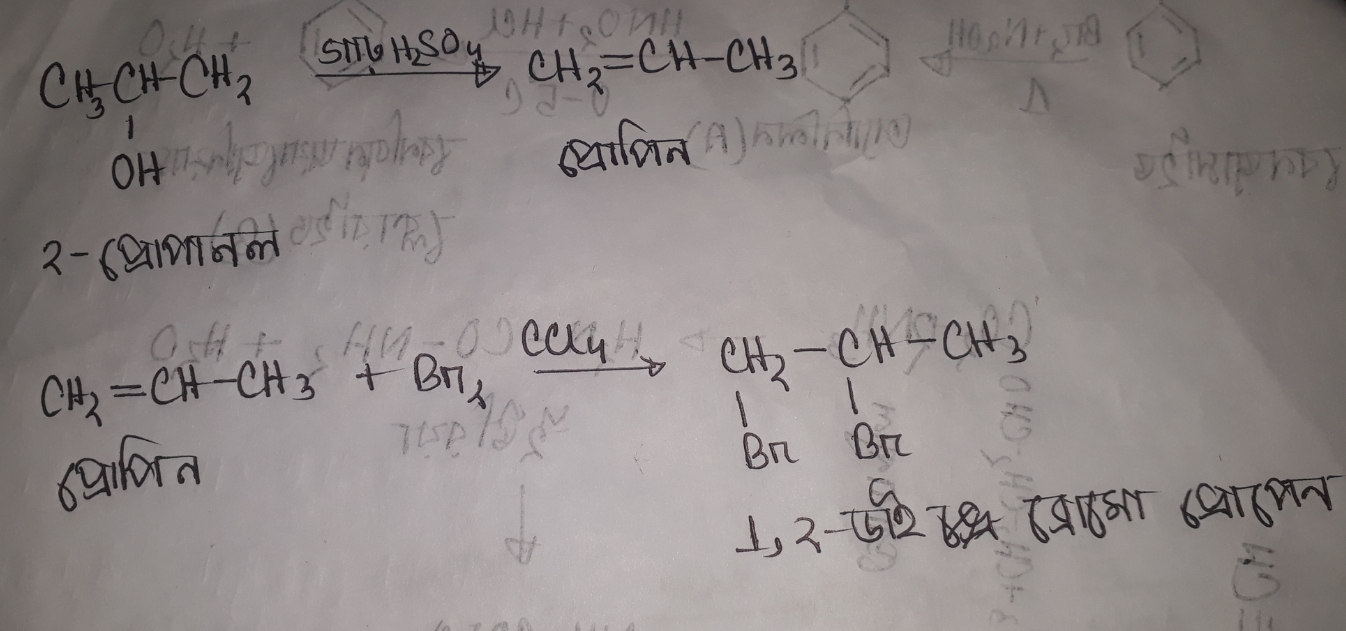 CH3-CH-CH2 গাঢ় H2SO4 → CH2=CH-CH3
OH
২-প্রোপানল প্রোপিন
CH2=CH-CH3 + Br2 CCl4 → CH2-CH-CH3
Br Br
প্রোপিন
1, ২-ডাই ব্রোমো প্রোপেন